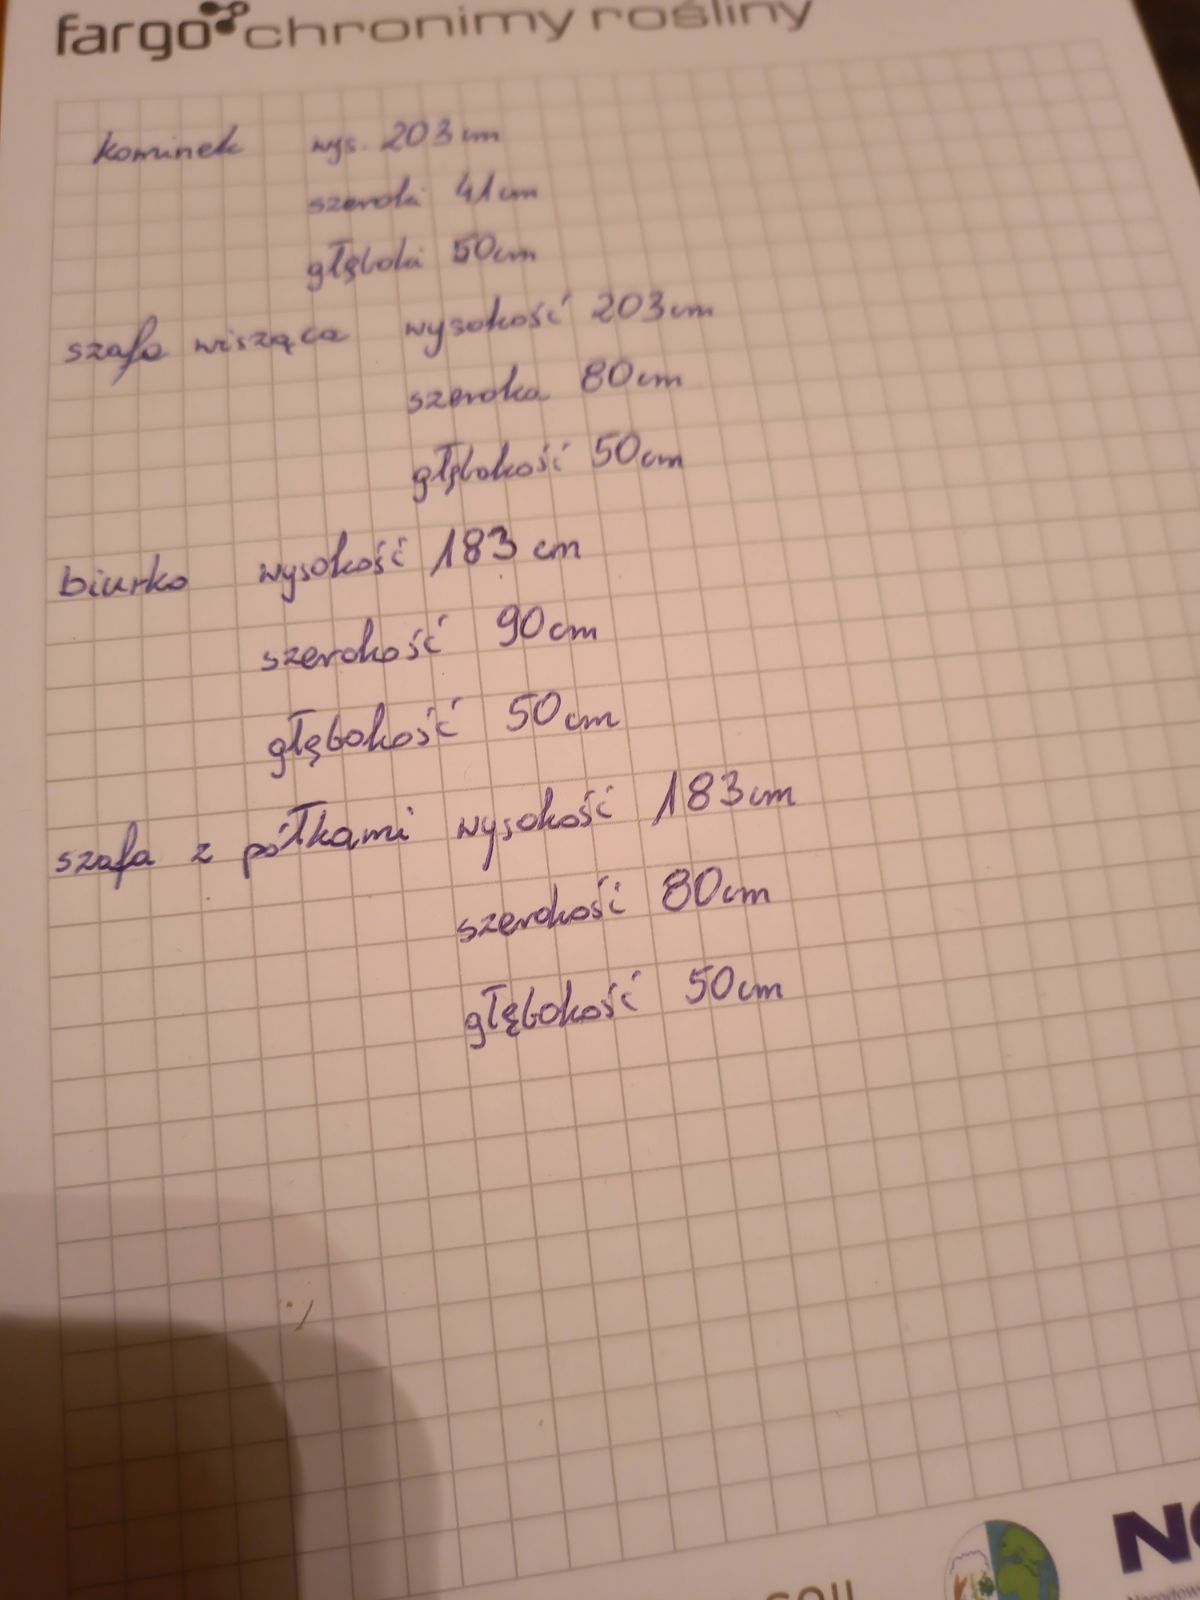 fargo chronimy rośliny
kominek wys. 203 cm
szeroki 41 cm
głęboki 50cm
szafa wisząca wysokość 203cm
szeroka 80cm
głębokość 50cm
biurko wysokość 183 cm
szerokość 90cm
głębokość 50cm
szafa z półkami wysokość 183cm
szerokość 80cm
głębokość 50cm